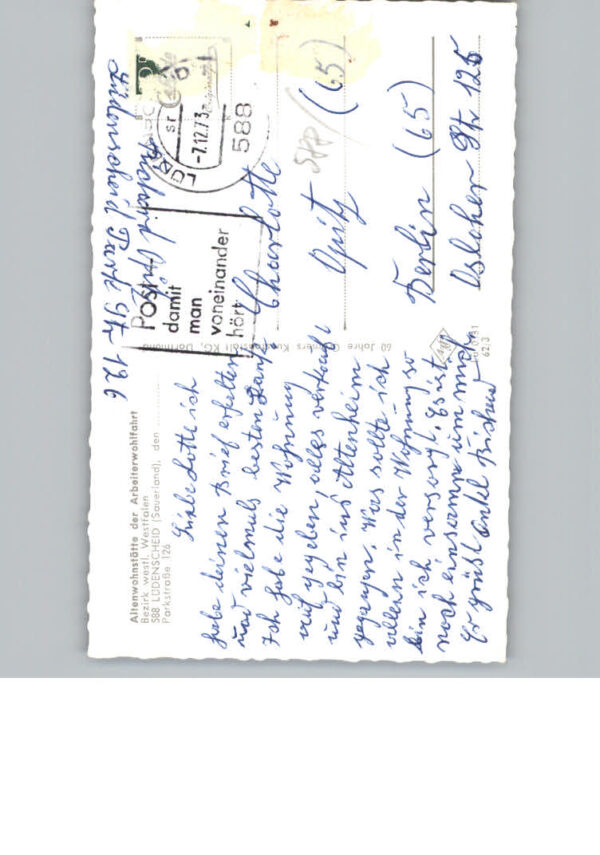 Altenwohnstätte der Arbeiterwohlfahrt
Bezirk westl. Westfalen
588 LÜDENSCHEID (Sauerland), den
Parkstraße 126
Liebe Lotte ich
habe deinen Brief erhalten
und vielmals besten Dank.
Ich habe die Wohnung
auf gegeben, alles verkauft
und bin ins Altenheim
gegangen. Was sollte ich
allein in der Wohnung so
bin ich versorgt. Es ist
noch einsamer um mich.
Er grüst Onkel Richard
Richard Opitz
Lüdenscheid Park Str 126
588
-7.12.73
Post-
damit
man
voneinander
hört
60 Jahre Cramers Kunstanstalt KG, Dortmund
Charlotte
Opitz (65)
588
Berlin (65)
Osloher Str. 125